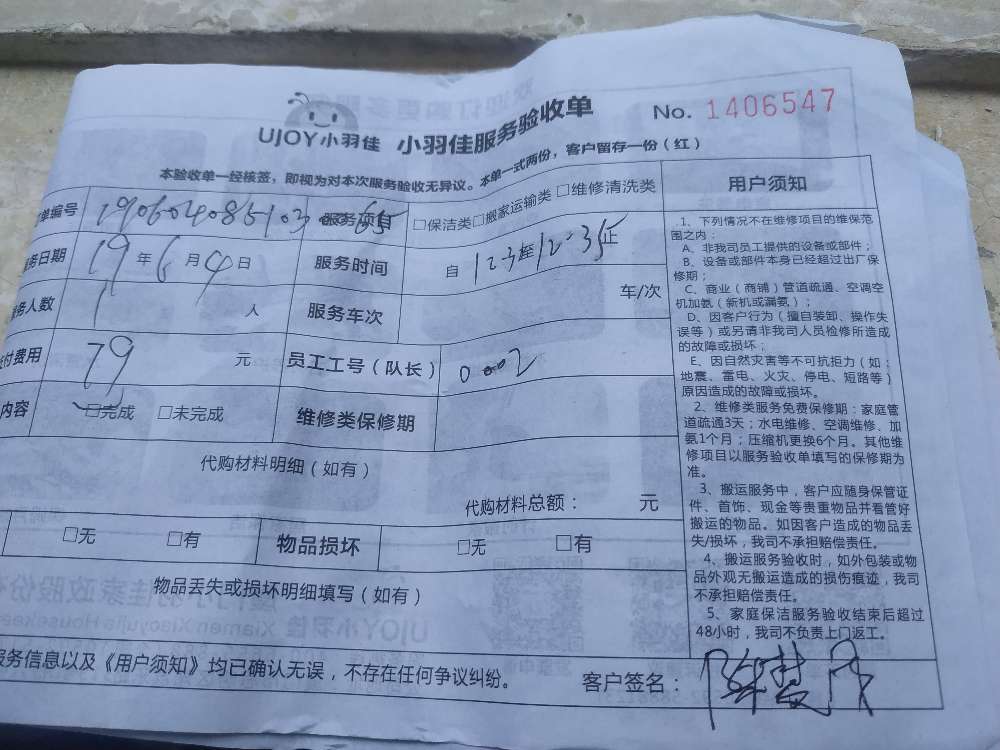 UJOY小羽佳 小羽佳服务验收单 No. 1406547
本验收单一经核签，即视为对本次服务验收无异议。本单一式两份，客户留存一份（红）
单编号 190604085103 服务项目 □保洁类□搬家运输类 □维修清洗类
务日期 19年6月4日 服务时间 自12-3至12-35
务人数 1 人 服务车次 车/次
付费用 79 元 员工工号（队长） 0002
内容 □完成 □未完成 维修类保修期
代购材料明细（如有）
代购材料总额： 元
□无 □有 物品损坏 □无 □有
物品丢失或损坏明细填写（如有）
服务信息以及《用户须知》均已确认无误，不存在任何争议纠纷。 客户签名：
用户须知
1、下列情况不在维修项目的维保范
围之内：
A、非我司员工提供的设备或部件；
B、设备或部件本身已经超过出厂保
修期；
C、商业（商铺）管道疏通、空调空
机加氨（新机或漏氨）；
D、因客户行为（擅自装卸、操作失
误等）或另请非我司人员检修所造成
的故障或损坏；
E、因自然灾害等不可抗拒力（如：
地震、雷电、火灾、停电、短路等）
原因造成的故障或损坏。
2、维修类服务免费保修期：家庭管
道疏通3天；水电维修、空调维修、加
氨1个月；压缩机更换6个月。其他维
修项目以服务验收单填写的保修期为
准。
3、搬运服务中，客户应随身保管证
件、首饰、现金等贵重物品并看管好
搬运的物品。如因客户造成的物品丢
失/损坏，我司不承担赔偿责任。
4、搬运服务验收时，如外包装或物
品外观无搬运造成的损伤痕迹，我司
不承担赔偿责任。
5、家庭保洁服务验收结束后超过
48小时，我司不负责上门返工。